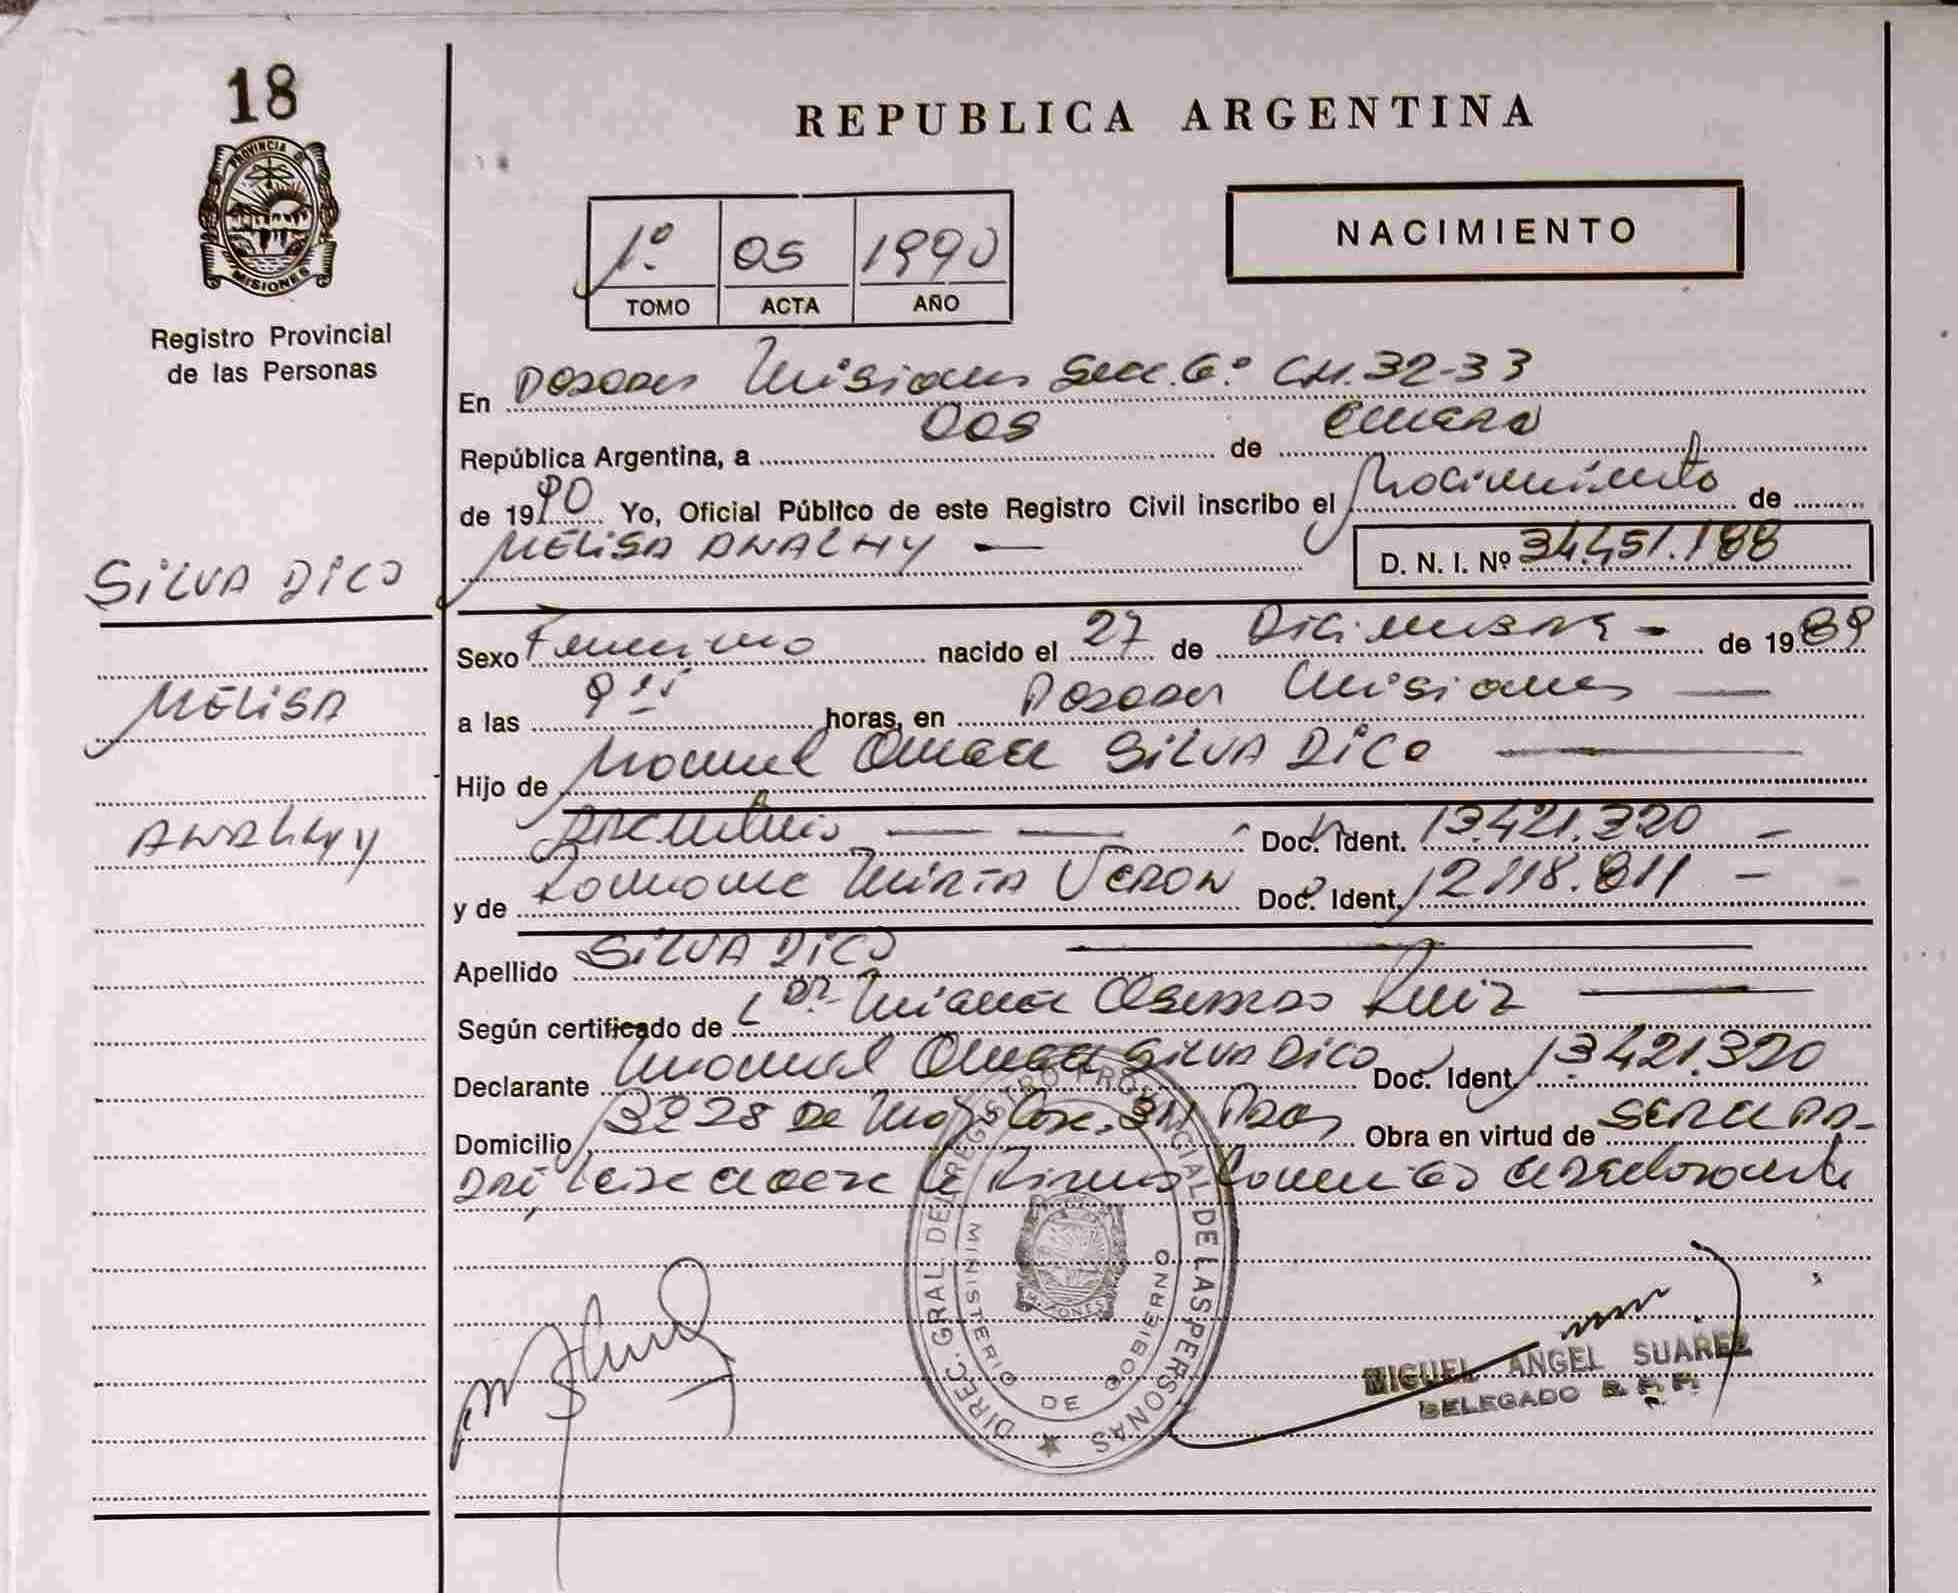 18
PROVINCIA DE
MISIONES
Registro Provincial
de las Personas
REPUBLICA ARGENTINA
NACIMIENTO
1º 05 1990
TOMO ACTA AÑO
En Posadas Misiones Secc. 6º CH. 32-33
República Argentina, a DOS de enero
de 1990 Yo, Oficial Público de este Registro Civil inscribo el Nacimiento de
MELISA ANALHY
D. N. I. Nº 34.451.188
SILVA DICO
MELISA
ANALHY
Sexo Femenino nacido el 27 de Diciembre de 1989
a las horas, en Posadas Misiones
Hijo de Manuel Omar SILVA DICO
Argentino Doc. Ident. 13.421.320
y de Ramona Mirta VERON Doc. Ident. 12.118.811
Apellido SILVA DICO
Según certificado de Ruiz
Declarante Manuel Omar SILVA DICO Doc. Ident. 13.421.320
Domicilio 28 de Mayo Obra en virtud de
DIREC. GRAL DE REGISTRO PROVINCIAL DE LAS PERSONAS
MINISTERIO DE GOBIERNO
MISIONES
MIGUEL ANGEL SUAREZ
DELEGADO R. P. P.